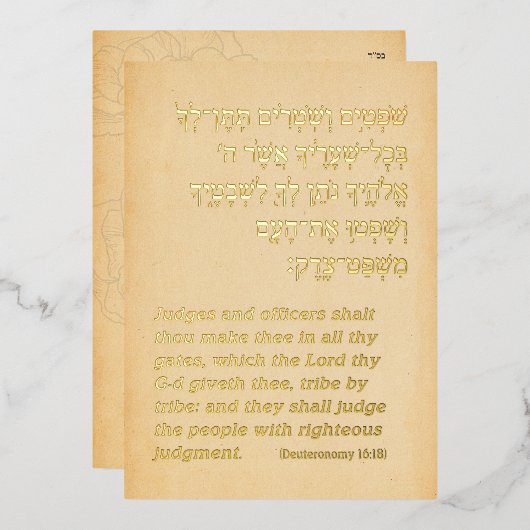 בס"ד
שֹׁפְטִים וְשֹׁטְרִים תִּתֶּן־לְךָ
בְּכׇל־שְׁעָרֶיךָ אֲשֶׁר ה'
אֱלֹהֶיךָ נֹתֵן לְךָ לִשְׁבָטֶיךָ
וְשָׁפְטוּ אֶת־הָעָם
מִשְׁפַּט־צֶדֶק׃
Judges and officers shalt
thou make thee in all thy
gates, which the Lord thy
G-d giveth thee, tribe by
tribe: and they shall judge
the people with righteous
judgment. (Deuteronomy 16:18)